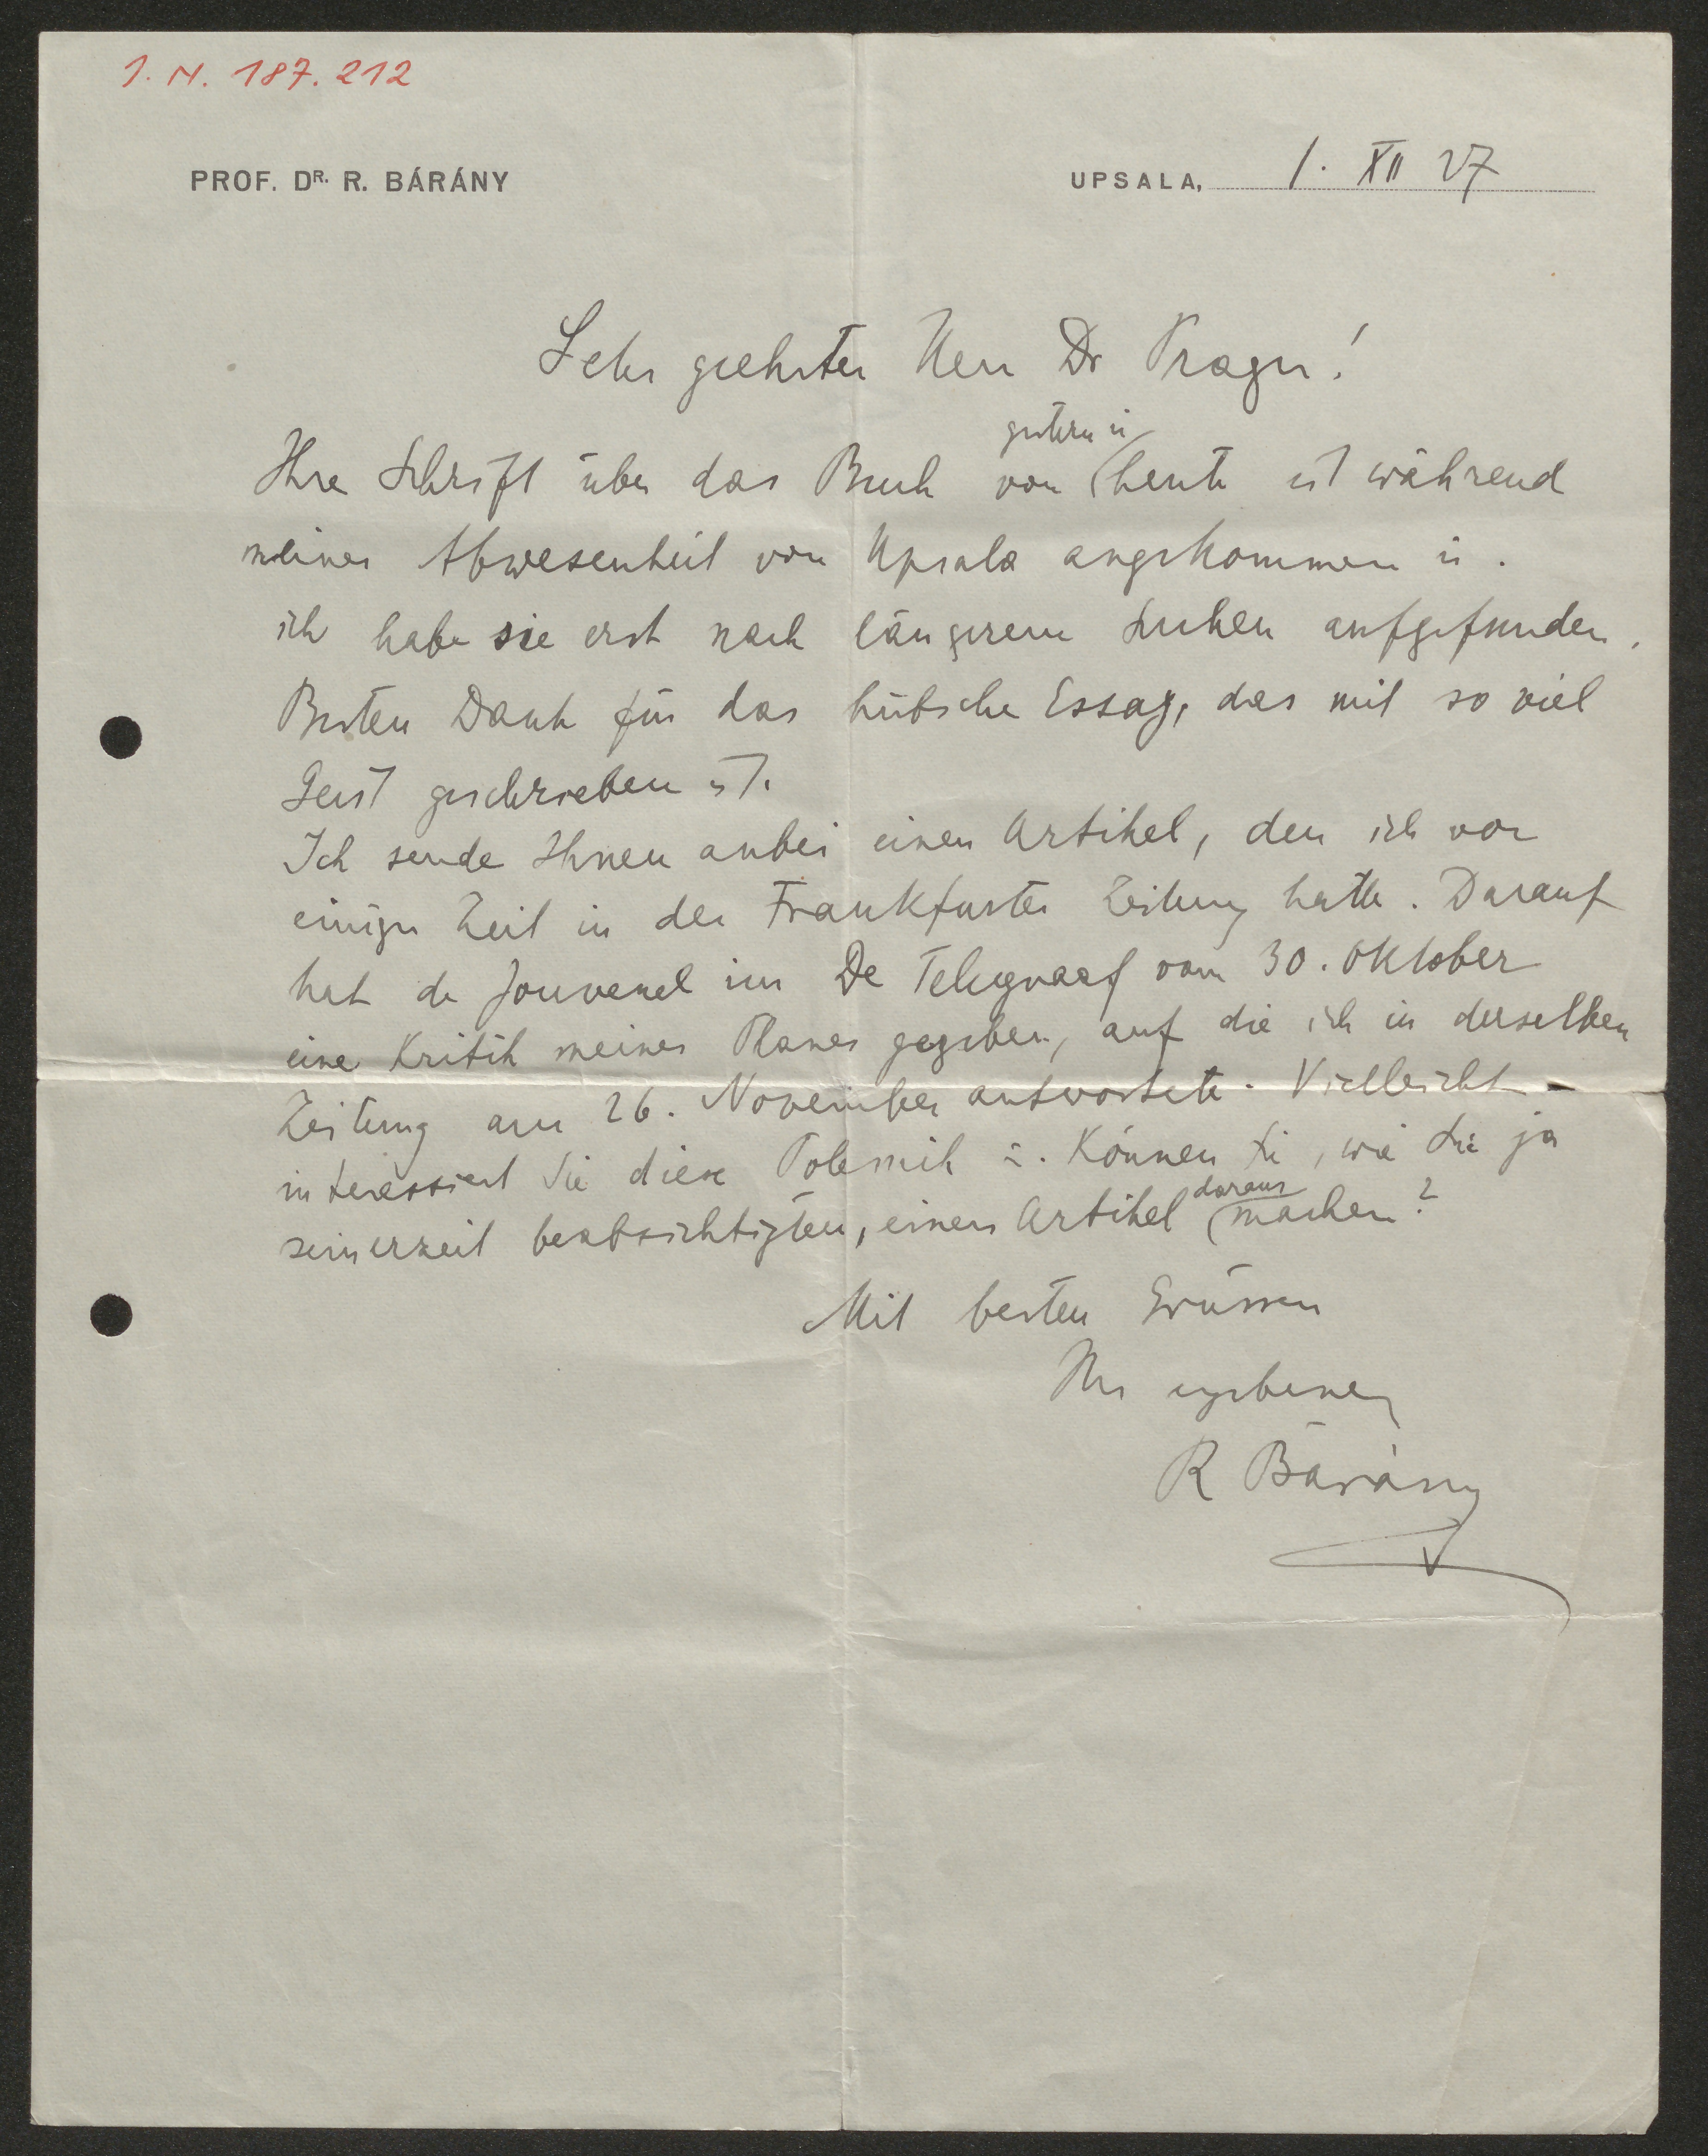 I. N. 187.212
PROF. DR. R. BÁRÁNY
UPSALA, 1. XII 27
Sehr geehrter Herr Dr Prager!
Ihre Schrift über das Buch von gestern u heute ist während
meiner Abwesenheit von Upsala angekommen u.
ich habe sie erst nach längerem Suchen aufgefunden.
Besten Dank für das hübsche Essay, das mit so viel
Geist geschrieben ist.
Ich sende Ihnen anbei einen Artikel, den ich vor
einiger Zeit in der Frankfurter Zeitung hatte. Darauf
hat de Jouvenel im De Telegraaf vom 30. Oktober
eine Kritik meines Planes gegeben, auf die ich in derselben
Zeitung am 26. November antwortete. Vielleicht
interessiert Sie diese Polemik u. Können Sie, wie Sie ja
seinerzeit beabsichtigten, einen Artikel daraus machen?
Mit besten Grüssen
Ihr ergebener
R Bárány